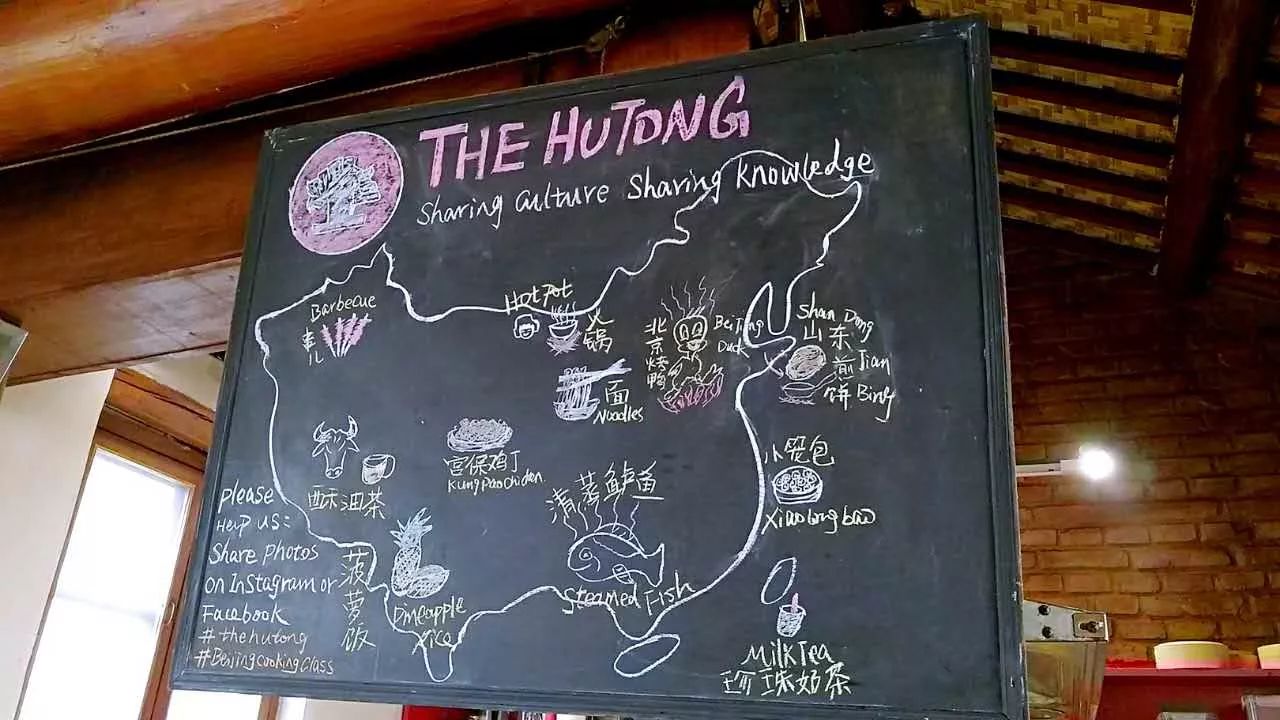 THE HUTONG
Sharing Culture Sharing Knowledge
Barbecue
串
儿
Hot Pot
火
锅
北
京
烤
鸭
BeiJing
Duck
Shan Dong
山东
煎 Jian
饼 Bing
面
Noodles
宫保鸡丁
Kung Pao chicken
小笼包
Xiao long bao
酥油茶
清蒸鲈鱼
Steamed Fish
菠
萝
饭
Pineapple
Rice
Milk Tea
珍珠奶茶
please
Help us:
Share Photos
on Instagram or
Facebook
#thehutong
#Beijingcookingclass